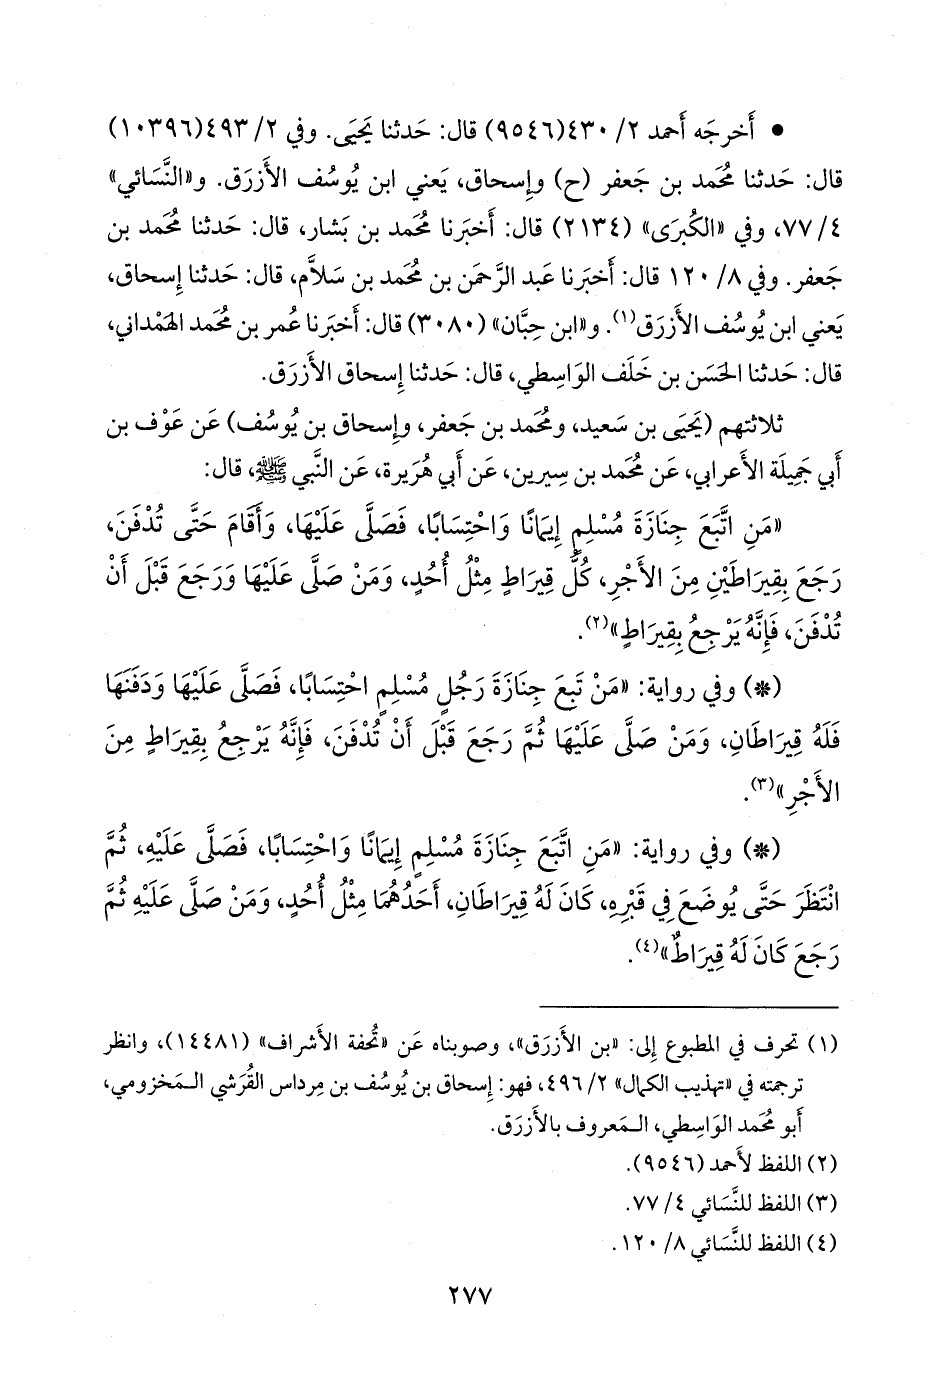 • أَخرجَه أَحمد ٢/ ٤٣٠(٩٥٤٦) قال: حَدثنا يَحيَى. وفي ٢/ ٤٩٣(١٠٣٩٦)
قال: حَدثنا مُحمد بن جَعفر (ح) وإِسحاق، يَعني ابن يُوسُف الأَزرَق. و«النَّسَائي»
٤/ ٧٧، وفي «الكُبرَى» (٢١٣٤) قال: أَخبَرنا مُحمد بن بَشار، قال: حَدثنا مُحمد بن
جَعفر. وفي ٨/ ١٢٠ قال: أَخبَرنا عَبد الرَّحمَن بن مُحمد بن سَلاَّم، قال: حَدثنا إِسحاق،
يَعني ابن يُوسُف الأَزرَق(١). و«ابن حِبَّان» (٣٠٨٠) قال: أَخبَرنا عُمر بن مُحمد الهَمْداني،
قال: حَدثنا الحَسَن بن خَلَف الوَاسِطي، قال: حَدثنا إِسحاق الأَزرَق.
ثلاثتهم (يَحيَى بن سَعيد، ومُحمد بن جَعفر، وإِسحاق بن يُوسُف) عَن عَوْف بن
أَبي جَمِيلَة الأَعرابي، عَن مُحمد بن سِيرين، عَن أَبي هُرَيرة، عَن النَّبي ﷺ، قال:
«مَنِ اتَّبَعَ جِنَازَةَ مُسْلِمٍ إِيمَانًا وَاحْتِسَابًا، فَصَلَّى عَلَيْهَا، وَأَقَامَ حَتَّى تُدْفَنَ،
رَجَعَ بِقِيرَاطَيْنِ مِنَ الأَجْرِ، كُلُّ قِيرَاطٍ مِثْلُ أُحُدٍ، وَمَنْ صَلَّى عَلَيْهَا وَرَجَعَ قَبْلَ أَنْ
تُدْفَنَ، فَإِنَّهُ يَرْجِعُ بِقِيرَاطٍ»(٢).
(*) وفي رواية: «مَنْ تَبِعَ جِنَازَةَ رَجُلٍ مُسْلِمٍ احْتِسَابًا، فَصَلَّى عَلَيْهَا وَدَفَنَهَا
فَلَهُ قِيرَاطَانِ، وَمَنْ صَلَّى عَلَيْهَا ثُمَّ رَجَعَ قَبْلَ أَنْ تُدْفَنَ، فَإِنَّهُ يَرْجِعُ بِقِيرَاطٍ مِنَ
الأَجْرِ»(٣).
(*) وفي رواية: «مَنِ اتَّبَعَ جِنَازَةَ مُسْلِمٍ إِيمَانًا وَاحْتِسَابًا، فَصَلَّى عَلَيْهِ، ثُمَّ
انْتَظَرَ حَتَّى يُوضَعَ فِي قَبْرِهِ، كَانَ لَهُ قِيرَاطَانِ، أَحَدُهُمَا مِثْلُ أُحُدٍ، وَمَنْ صَلَّى عَلَيْهِ ثُمَّ
رَجَعَ كَانَ لَهُ قِيرَاطٌ»(٤).
(١) تحرف في المطبوع إلى: «بن الأَزرَق»، وصوبناه عَن «تُحفة الأَشراف» (١٤٤٨١)، وانظر
ترجمته في «تهذيب الكمال» ٢/ ٤٩٦، فهو: إسحاق بن يُوسُف بن مِرداس القُرَشي المَخزومي،
أَبو مُحمد الوَاسِطي، المَعروف بالأَزرَق.
(٢) اللفظ لأحمد (٩٥٤٦).
(٣) اللفظ للنَّسَائي ٤/ ٧٧.
(٤) اللفظ للنَّسَائي ٨/ ١٢٠.
٢٧٧